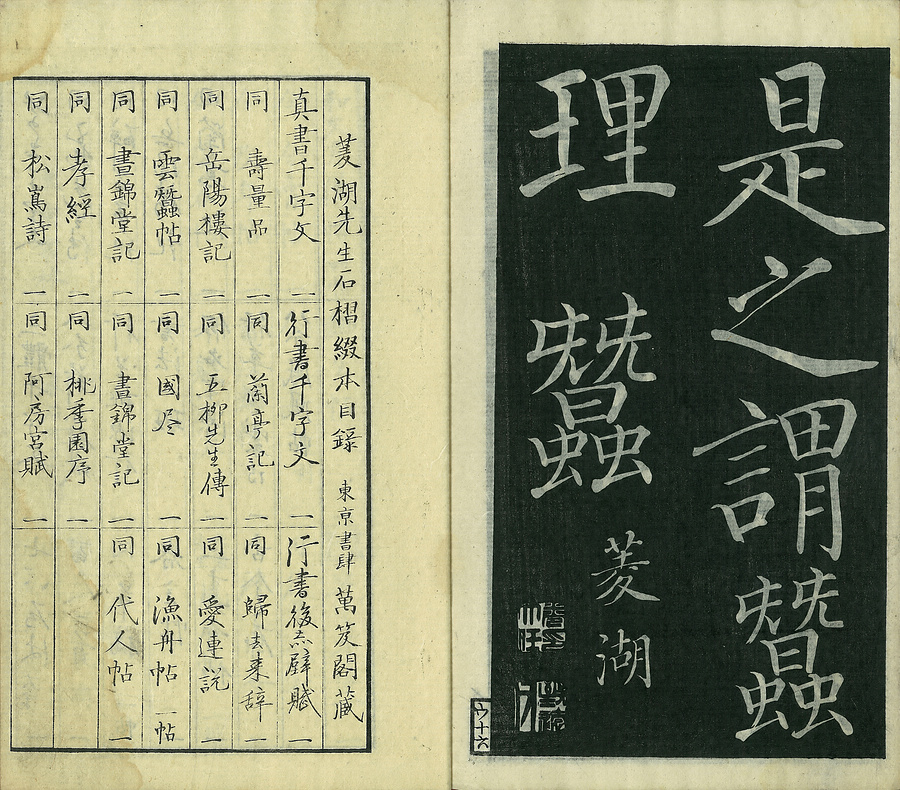 是之謂蠶
理蠶
菱湖
ウ十六
菱湖先生石摺綴本目録 東京書肆 萬笈閣藏
真書千字文 一 行書千字文 一 行書後赤壁賦 一
同 壽量品 一 同 蘭亭記 一 同 歸去来辞 一
同 岳陽樓記 一 同 五柳先生傳 一 同 愛連説 一
同 雲蠶帖 一 同 國尽 一 同 漁舟帖 一帖
同 晝錦堂記 一 同 晝錦堂記 一 同 代人帖 一
同 孝經 一 同 桃李園序 一
同 松嶌詩 一 同 阿房宮賦 一